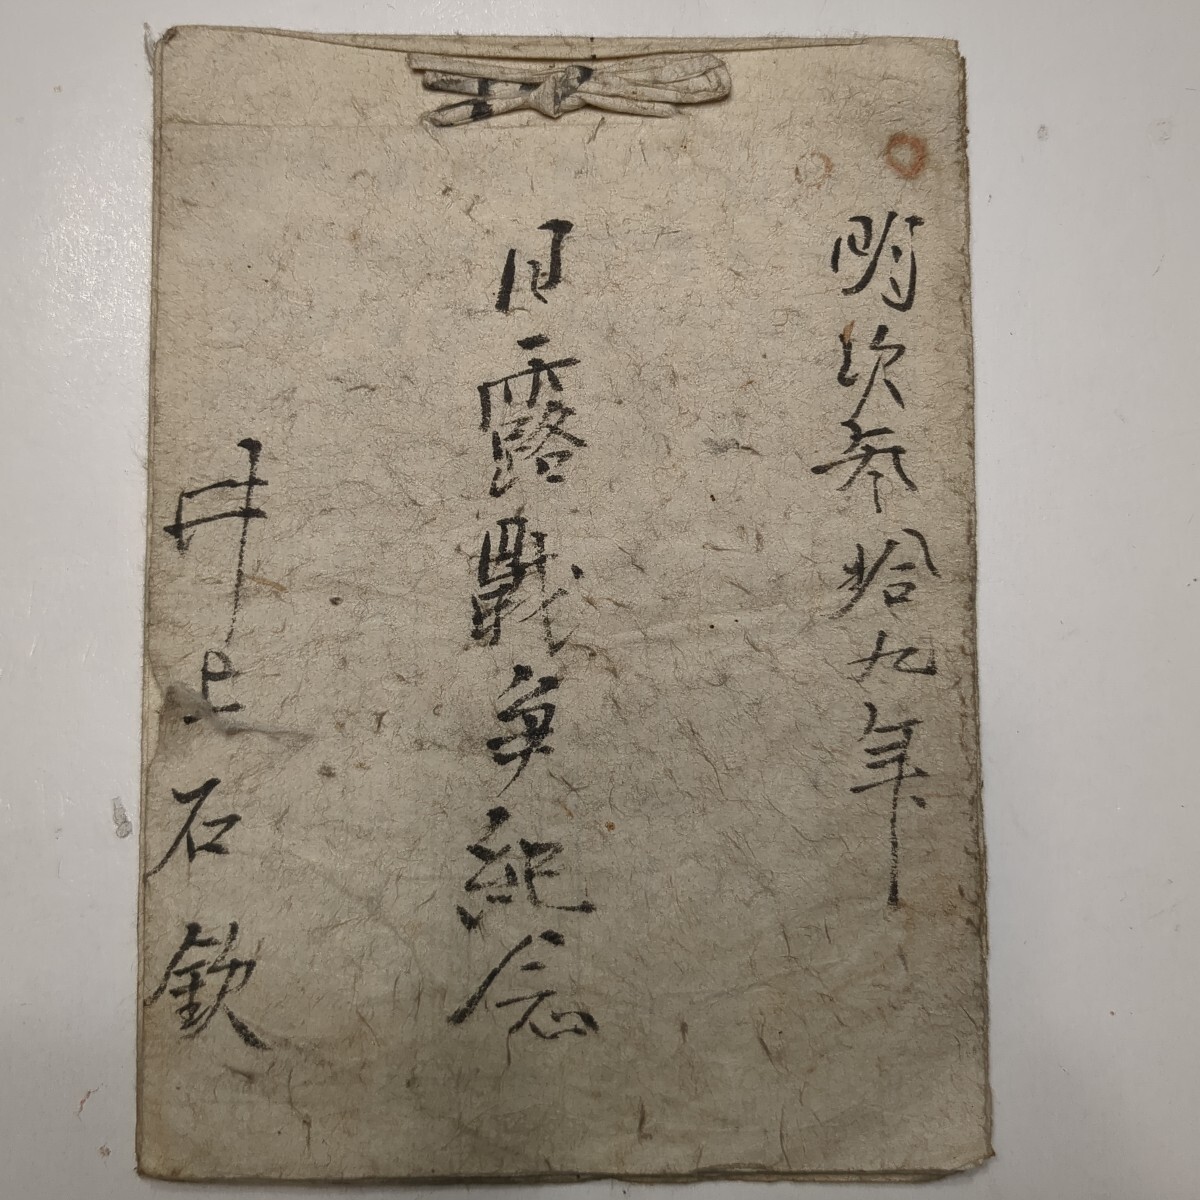 明治参拾九年
日露戦争紀念
井上石欽